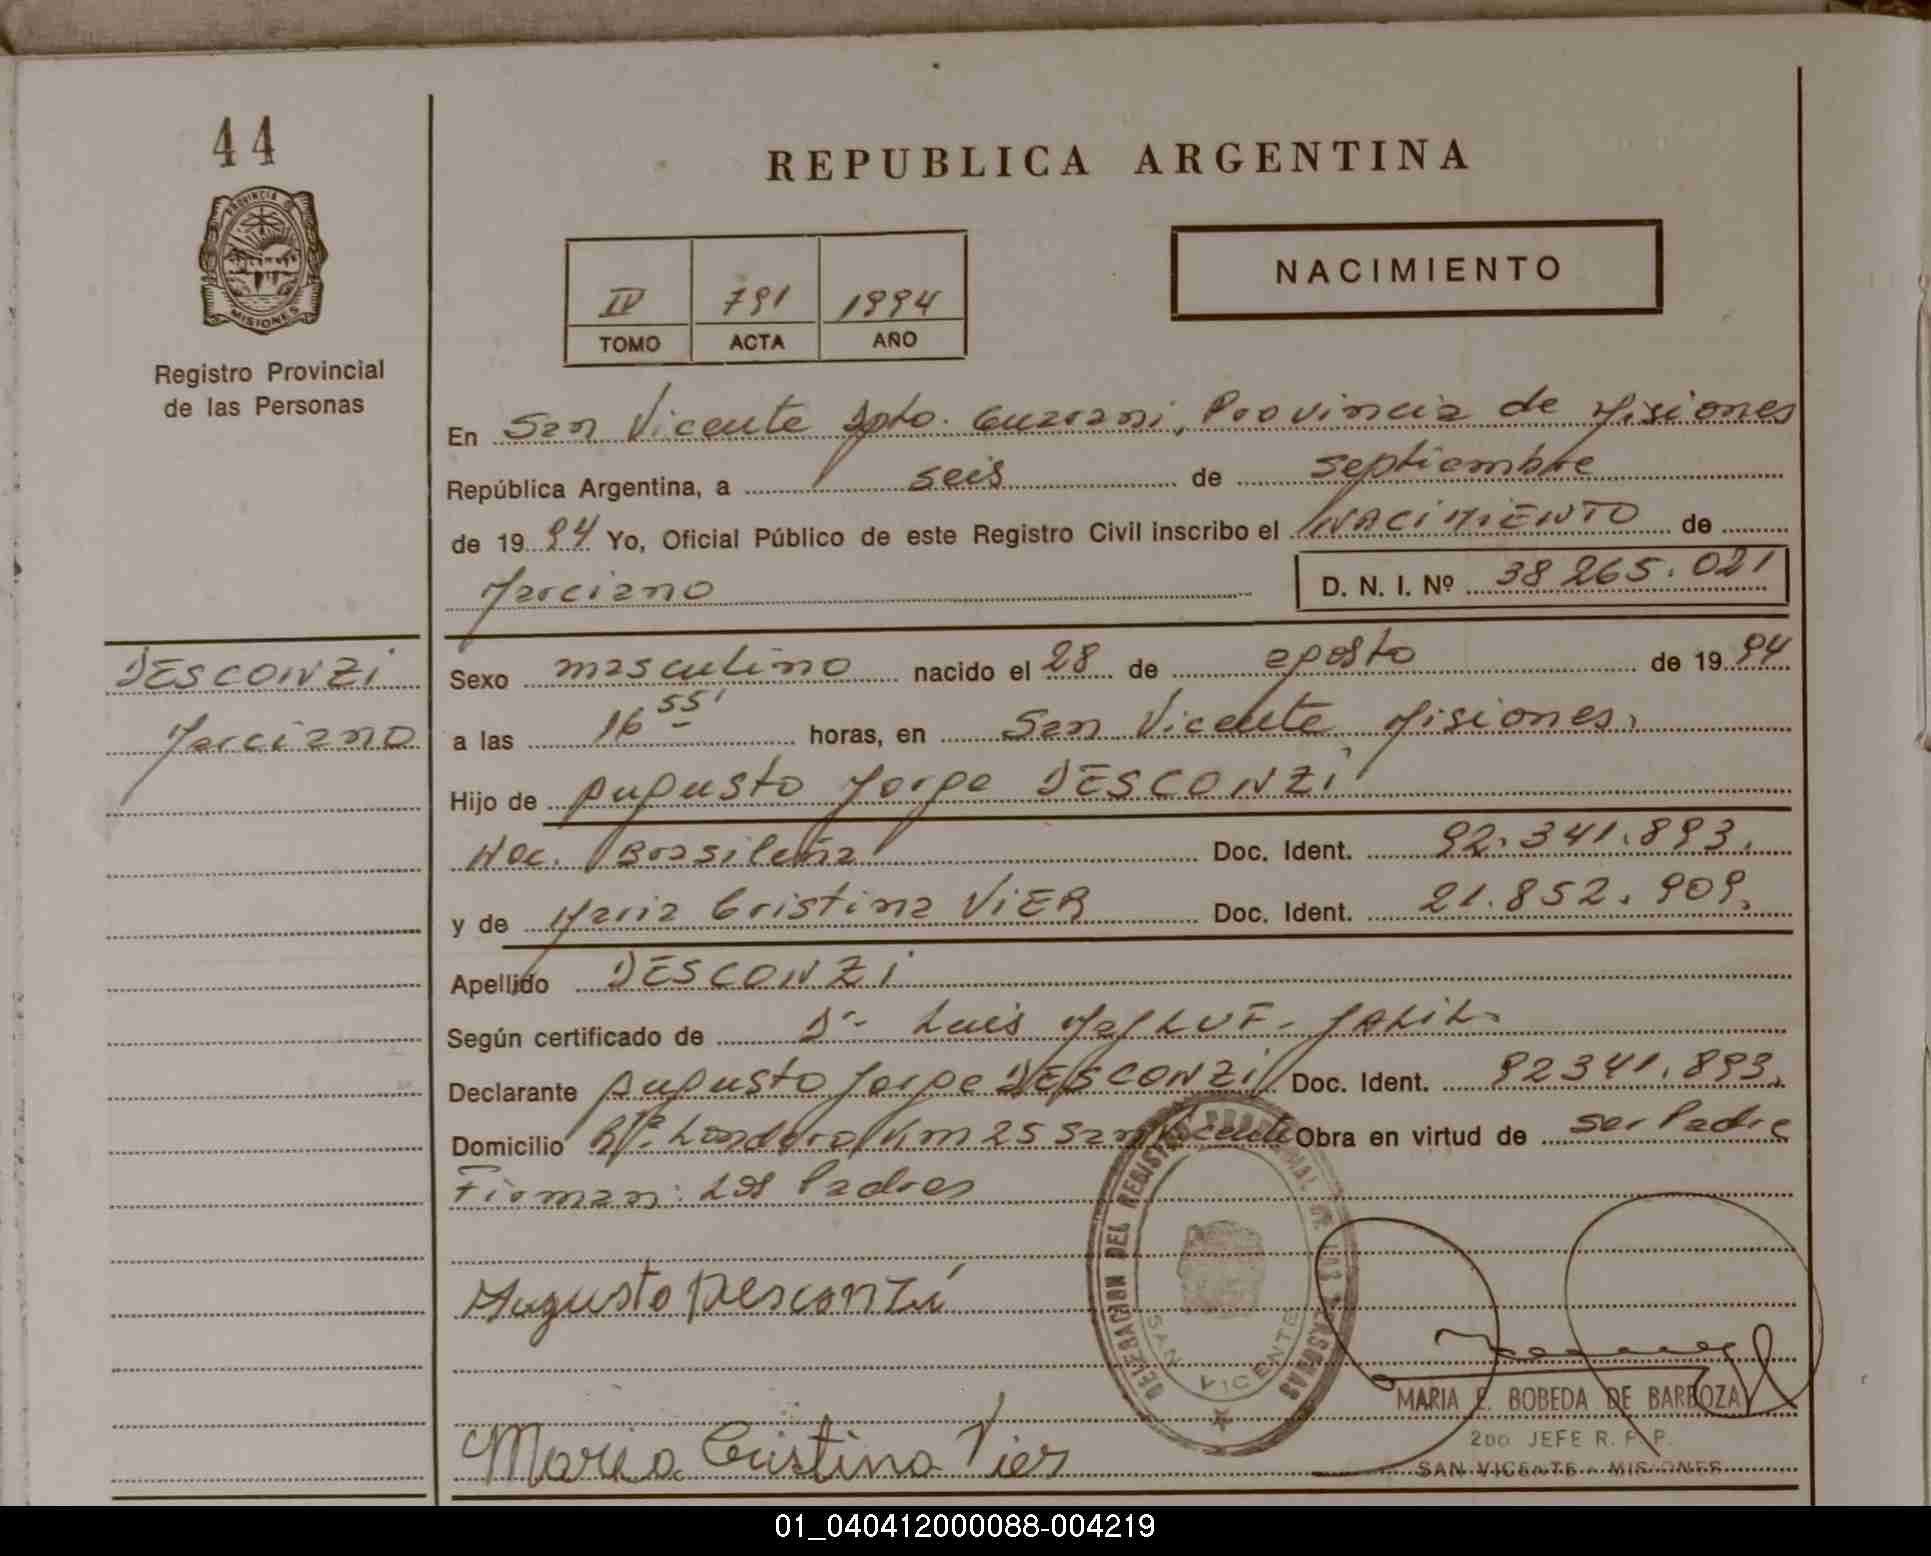 44
PROVINCIA DE
MISIONES
Registro Provincial
de las Personas
REPUBLICA ARGENTINA
NACIMIENTO
IV 791 1994
TOMO ACTA AÑO
En San Vicente Dpto. Guarani, Provincia de Misiones
República Argentina, a seis de septiembre
de 1994 Yo, Oficial Público de este Registro Civil inscribo el NACIMIENTO de
Marciano D. N. I. Nº 38265.021
DESCONZI
Marciano
Sexo masculino nacido el 28 de agosto de 1994
a las 16 55' horas, en San Vicente Misiones.
Hijo de Augusto Jorge DESCONZI
Nac. Brasileña Doc. Ident. 92.341.893.
y de Maria Cristina ViER Doc. Ident. 21.852.909.
Apellido DESCONZI
Según certificado de Dr. Luis JALIL
Declarante Augusto Jorge DESCONZI Doc. Ident. 92341.893.
Domicilio Km 25 San Vicente Obra en virtud de ser Padre
Firman: Los Padres
DELEGACION DEL REGISTRO PROVINCIAL DE LAS PERSONAS
SAN VICENTE
Augusto Desconzi
Maria Cristina Vier
MARIA E. BOBEDA DE BARBOZA
2DO JEFE R. P. P.
SAN VICENTE - MISIONES
01_040412000088-004219